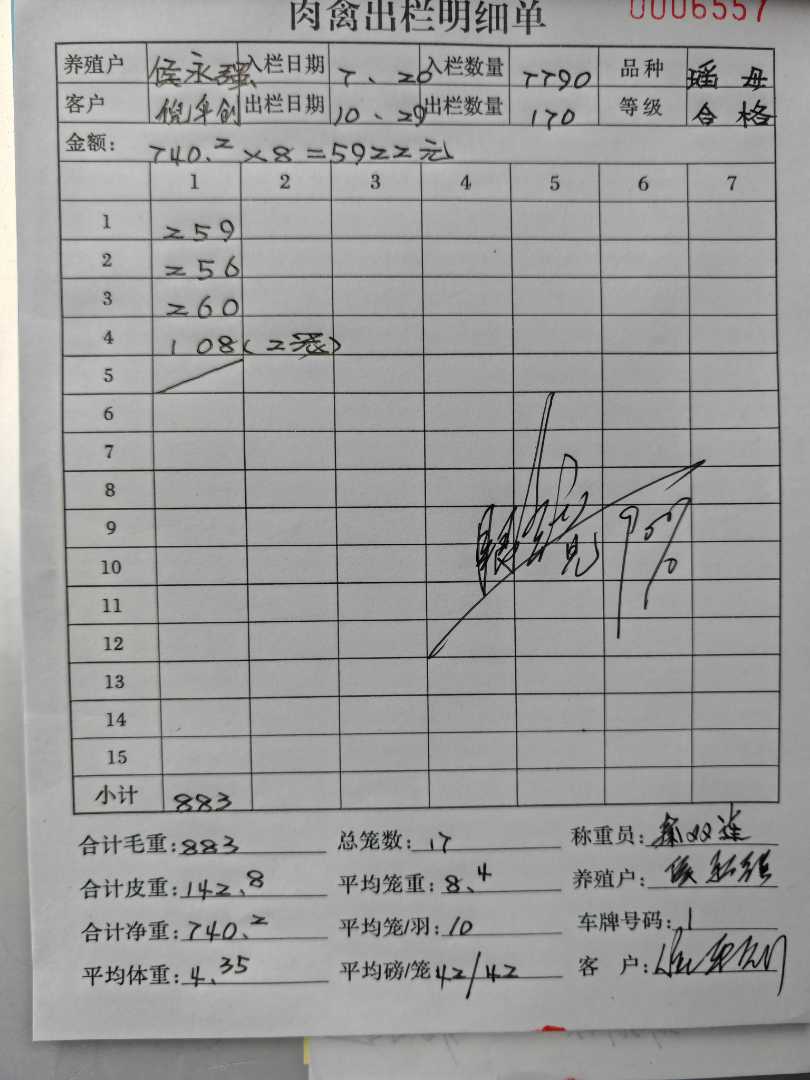 肉禽出栏明细单 0006557
养殖户 侯永强 入栏日期 7、20 入栏数量 7790 品种 瑶 母
客户 倪 创 出栏日期 10、29 出栏数量 170 等级 合格
金额: 740.2×8=5922元
1 2 3 4 5 6 7
1 259
2 256
3 260
4 108(2笼)
5
6
7
8
9
10
11
12
13
14
15
小计 883
合计毛重:883 总笼数:17 称重员:
合计皮重:142.8 平均笼重:8.4 养殖户:侯永强
合计净重:740.2 平均笼/羽:10 车牌号码:1
平均体重:4.35 平均磅/笼 42/42 客 户: